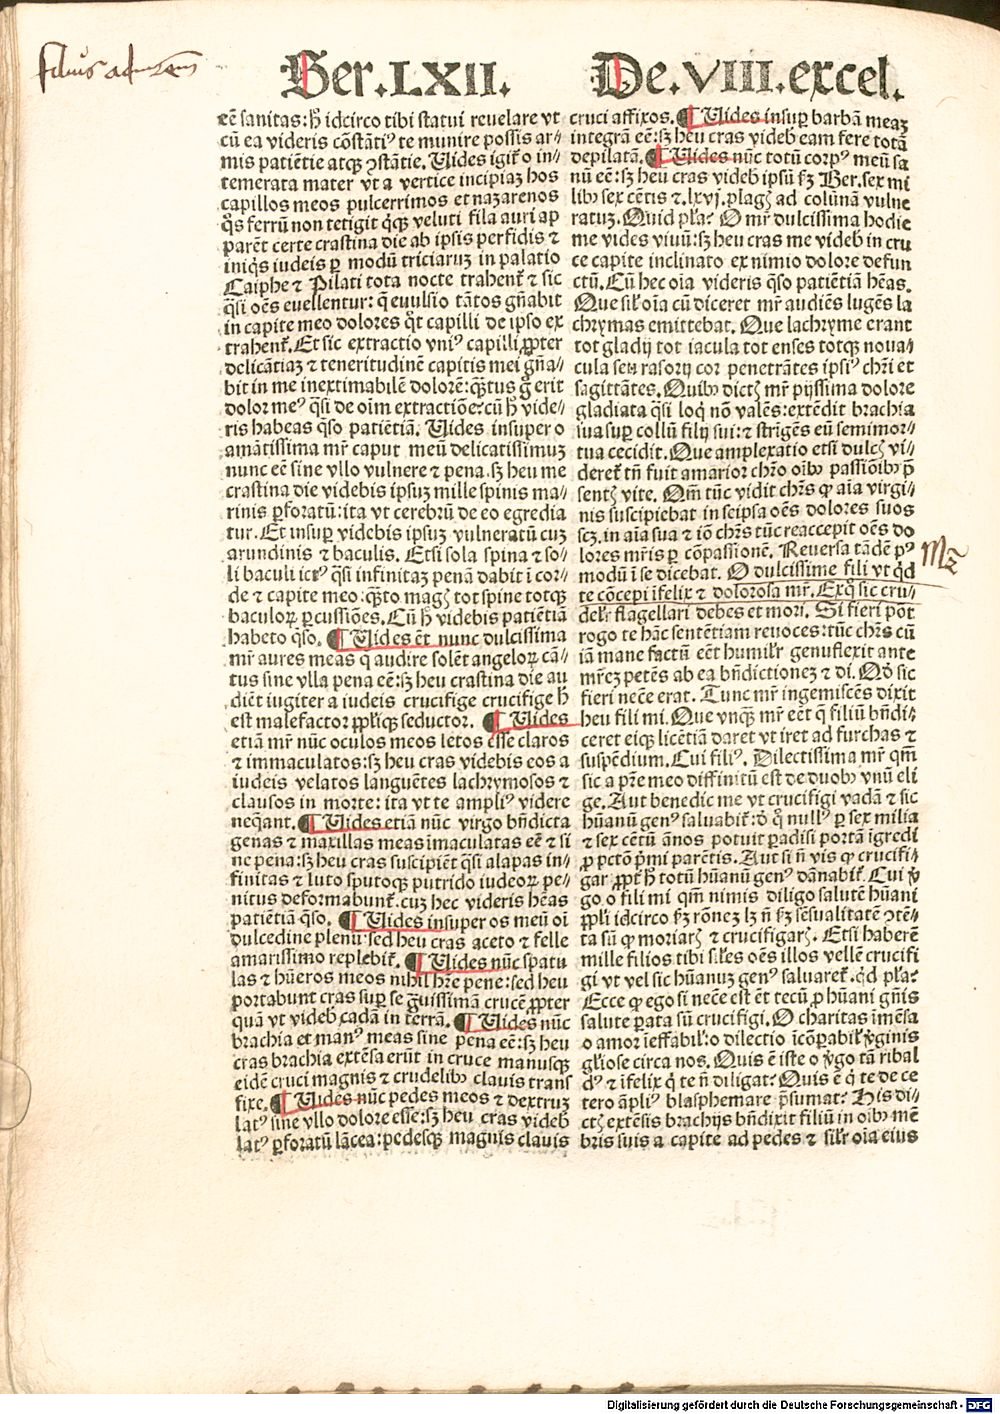 filius ad matrem
Ser.LXII. De.VIII.excel.
eē sanitas:hͦ idcirco tibi statui reuelare vt
cū ea videris cōstātiꝰ te munire possis ar⸗
mis patiētie atqꝫ ꝯstātie. Uides igit᷑ o in⸗
temerata mater vt a vertice incipiaꝫ hos
capillos meos pulcerrimos et nazarenos
q̄s ferrū non tetigit q̇qꝫ veluti fila auri ap
parēt certe crastina die ab ipsis perfidis ⁊
iniq̇s iudeis ꝑ modū triciaruꝫ in palatio
Caiphe ⁊ Pilati tota nocte trahent᷑ ⁊ sic
q̄si oēs euellentur: q̄ euulsio tātos gn̄abit
in capite meo dolores q̇t capilli de ipso ex
trahent᷑. Et sic extractio vniꝰ capilli ꝓpter
delicātiaꝫ ⁊ teneritudinē capitis mei gn̄a⸗
bit in me inextimabilē dolorē: q̄ꝫtus gͦ erit
dolor meꝰ q̄si de oīm extractiōe: cū hͦ vide⸗
ris habeas q̄so patiētiā. Uides insuper o
amātissima mr̄ caput meū delicatissimuꝫ
nunc eē sine vllo vulnere ⁊ pena.sꝫ heu me
crastina die videbis ipsuꝫ mille spinis ma⸗
rinis ꝑforatū: ita vt cerebrū de eo egredia
tur. Et insuꝑ videbis ipsuꝫ vulneratū cuꝫ
arundinis ⁊ baculis. Etsi sola spina ⁊ so⸗
li baculi ictꝰ q̄si infinitaꝫ penā dabit ī cor⸗
de ⁊ capite meo: q̄ꝫto magꝭ tot spine totqꝫ
baculoꝝ ꝑcussiōes. Cū hͦ videbis patiētiā
habeto q̄so. ¶ Uides ēt nunc dulcissima
mr̄ aures meas q̄ audire solēt angeloꝝ cā⸗
tus sine vlla pena eē: sꝫ heu crastina die au
diēt iugiter a iudeis crucifige crucifige hͦ
est malefactor ꝓpl̄iqꝫ seductor. ¶ Uides
etiā mr̄ nūc oculos meos letos esse claros
⁊ immaculatos: sꝫ heu cras videbis eos a
iudeis velatos languētes lachrymosos ⁊
clausos in morte: ita vt te ampliꝰ videre
neq̄ant. ¶ Uides etiā nūc virgo bn̄dicta
genas ⁊ maxillas meas īmaculatas eē ⁊ si
ne pena: sꝫ heu cras suscipiēt q̄si alapas in⸗
finitas ⁊ luto sputoqꝫ putrido iudeoꝝ pe⸗
nitus deformabunt᷑. cuꝫ hec videris hēas
patiētiā q̄so. ¶ Uides insuper os meū oī
dulcedine plenū: sed heu cras aceto ⁊ felle
amarissimo replebit᷑. ¶ Uides nūc spatu
las ⁊ hūeros meos nihil hr̄e pene: sed heu
portabunt cras suꝑ se g̈uissimā crucē ꝓpter
quā vt videbꝭ cadā in terrā. ¶ Uides nūc
brachia et manꝰ meas sine pena eē: sꝫ heu
cras brachia extēsa erūt in cruce manusqꝫ
eidē cruci magnis ⁊ crudelibꝰ clauis trans
fixe. ¶ Uides nūc pedes meos ⁊ dextruꝫ
latꝰ sine vllo dolore esse: sꝫ heu cras videbꝭ
latꝰ ꝑforatū lācea: pedesqꝫ magnis clauis
cruci affixos. ¶ Uides insuꝑ barbā meaꝫ
integrā eē: sꝫ heu cras videbꝭ eam fere totā
depilatā. ¶ Uides nūc totū corpꝰ meū sa
nū eē: sꝫ heu cras videbꝭ ipsū ẜꝫ Ber. sex mi
libꝰ sex cētis ⁊ .lxvj. plagꝭ ad colūnā vulne
ratuꝫ. Quid pl̄a? O mr̄ dulcissima hodie
me vides viuū: sꝫ heu cras me videbꝭ in cru
ce capite inclinato ex nimio dolore defun
ctū. Cū hec oīa videris q̄so patiētiā hēas.
Que sil̄r oīa cū diceret mr̄ audiēs lugēs la
chrymas emittebat. Que lachryme erant
tot gladij tot iacula tot enses totqꝫ noua⸗
cula seu rasorij cor penetrātes ipsiꝰ chr̄i et
sagittātes. Quibꝰ dictꝭ mr̄ pijssima dolore
gladiata q̄si loq̇ nō valēs: extēdit brachia
sua suꝑ collū filij sui: ⁊ strīgēs eū semimor⸗
tua cecidit. Que amplexatio etsi dulcꝭ vi⸗
deret᷑ tn̄ fuit amarior chr̄o oībꝰ passiōibꝰ p̄
sentꝭ vite. Qm̄ tūc vidit chr̄s ꝙ aīa virgi⸗
nis suscipiebat in seipsa oēs dolores suos
scꝫ. in aīa sua ⁊ iō chr̄s tūc reaccepit oēs do
lores mr̄is ꝑ cōpassionē. Reuersa tādē pꝰ
Mꝫ
modū ī se dicebat. O dulcissime fili vt q̇d
te cōcepi īfelix ⁊ dolorosa mr̄. Ex q̇ sic cru⸗
del̄r flagellari debes et mori. Si fieri pōt
rogo te hāc sentētiam reuoces: tūc chr̄s cū
iā mane factū eēt humil̄r genuflexit ante
mr̄eꝫ petēs ab ea bn̄dictionez ⁊ di. Mō sic
fieri necē erat. Tunc mr̄ ingemiscēs dixit
heu fili mi. Que vnqꝫ mr̄ eēt q̄ filiū bn̄di⸗
ceret eiqꝫ licētiā daret vt iret ad furchas ⁊
suspēdium. Cui filiꝰ. Dilectissima mr̄ qm̄
sic a pr̄e meo diffinitū est de duobꝰ vnū eli
ge. Aut benedic me vt crucifigi vadā ⁊ sic
hūanū genꝰ saluabit᷑: ō q̇ nullꝰ ꝑ sex milia
⁊ sex cētū ānos potuit ꝑadisi portā īgredi
ꝓ pctō p̄mi parētis. Aut si n̄ vis ꝙ crucifi⸗
gar ꝓpt̄ hͦ totū hūanū genꝰ dānabit᷑. Cui v̄
go. o fili mi qm̄ nimis diligo salutē hūani
ꝓpl̄i idcirco ẜꝫ rōnez lꝫ n̄ ẜꝫ sēsualitatē ꝯtē⸗
ta sū ꝙ moriarꝭ ⁊ crucifigarꝭ. Etsi haberē
mille filios tibi sil̄es oēs illos vellē crucifi
gi vt vel sic hūanuꝫ genꝰ saluaret᷑. q̇d pl̄a?
Ecce ꝙ ego si necē est ēt tecū ꝓ hūani gn̄is
salute ꝑata sū crucifigi. O charitas īmēsa
o amor ieffabil̄: o dilectio īcōꝑabil̄ v̄ginis
gl̄iose circa nos. Quis ē iste o v̄go tā ribal
dꝰ ⁊ īfelix q̇ te n̄ diligat? Quis ē q̇ te de ce
tero āpliꝰ blasphemare p̄sumat? His di⸗
ctꝭ extēsis brachijs bn̄dixit filiū in oībꝰ mē
bris suis a capite ad pedes ⁊ sil̄r oīa eius
Digitalisierung gefördert durch die Deutsche Forschungsgemeinschaft - DFG